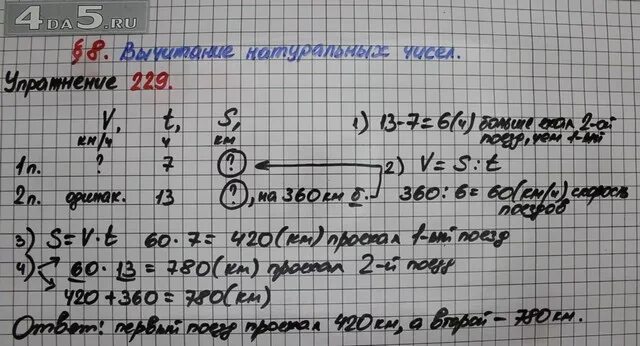 4DA5.RU
§8. Вычитание натуральных чисел.
Упражнение 229.
V, км/ч t, ч S, км
1п. ? 7 ?
2п. одинак. 13 ?, на 360 км б.
1) 13-7=6(ч) больше ехал 2-ой
поезд, чем 1-ый
2) V=S:t
360:6=60(км/ч) скорость
поездов
3) S=V·t 60·7=420(км) проехал 1-ый поезд
4) 60·13=780(км) проехал 2-й поезд
420+360=780(км)
Ответ: первый поезд проехал 420км, а второй – 780 км.